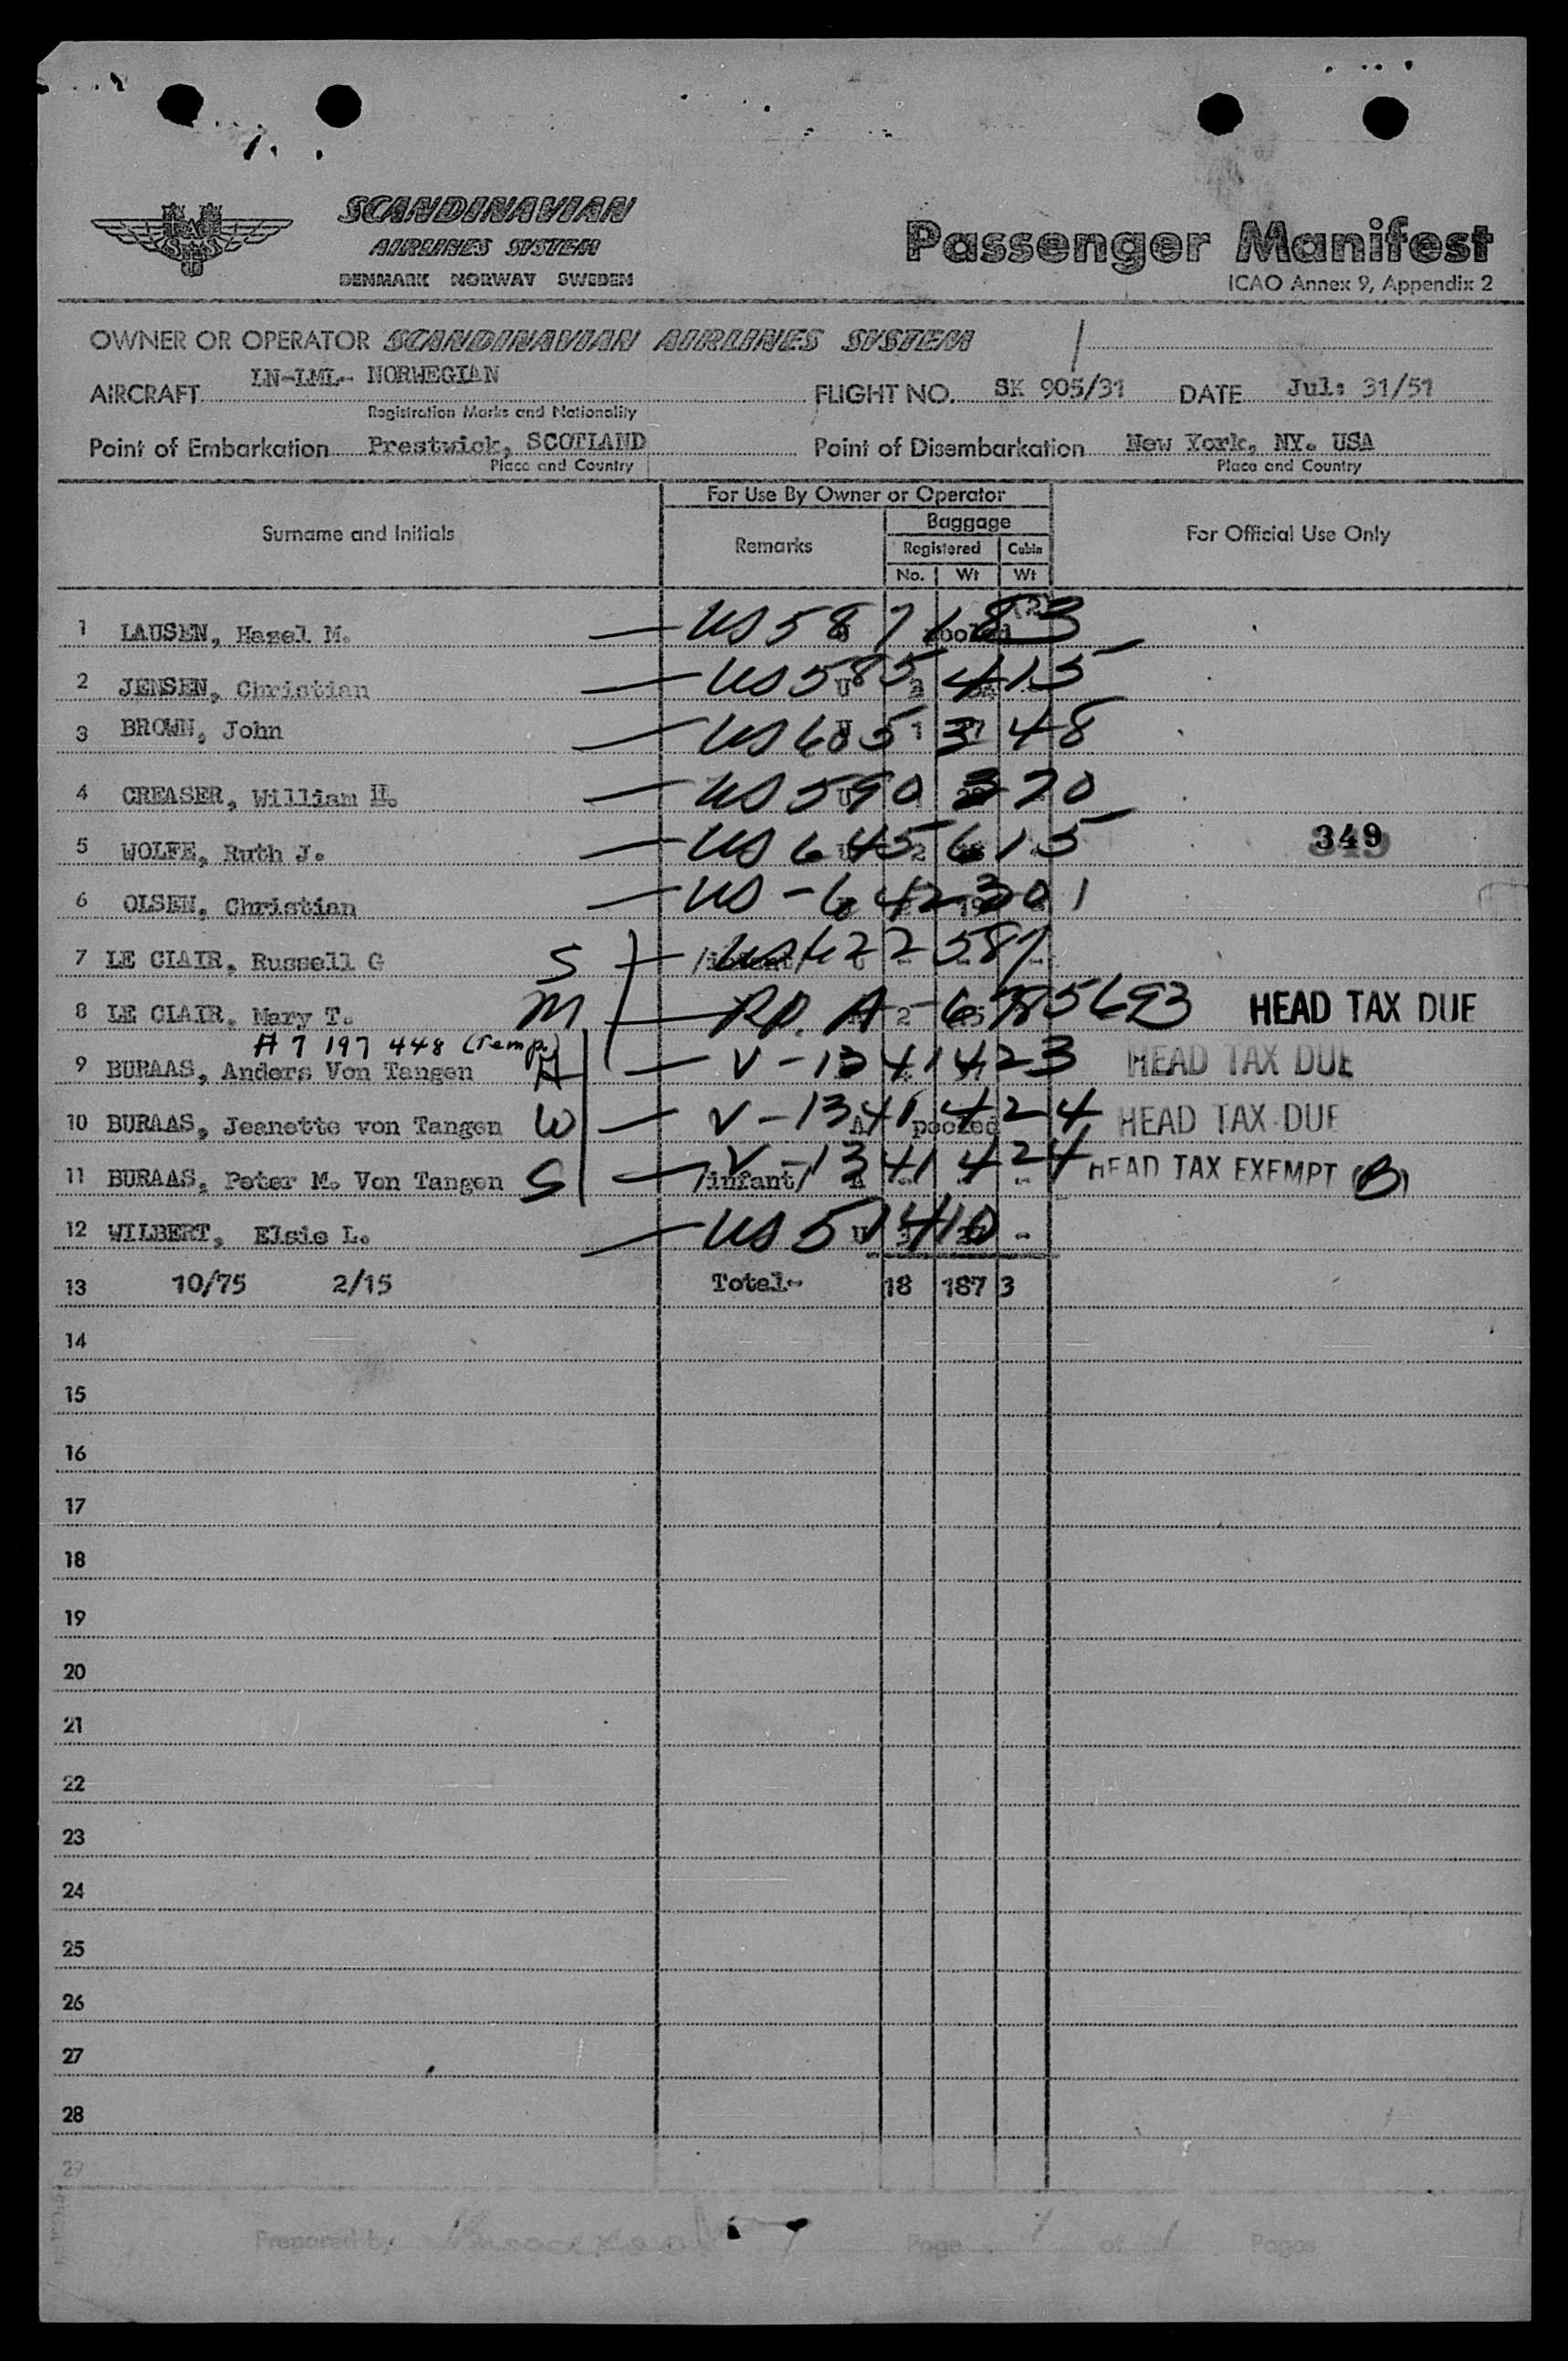 SAS
SCANDINAVIAN
AIRLINES SYSTEM
DENMARK NORWAY SWEDEN
Passenger Manifest
ICAO Annex 9, Appendix 2
OWNER OR OPERATOR SCANDINAVIAN AIRLINES SYSTEM
AIRCRAFT LN-LML- NORWEGIAN FLIGHT NO. SK 905/31 DATE Jul: 31/51
Registration Marks and Nationality
Point of Embarkation Prestwick, SCOTLAND Point of Disembarkation New York, NY. USA
Place and Country Place and Country
For Use By Owner or Operator
Surname and Initials Remarks Baggage For Official Use Only
Registered Cabin
No. Wt Wt
1 LAUSEN, Hazel M. — US 587183 pooled
2 JENSEN, Christian — US 585415
3 BROWN, John — US 685348
4 CREASER, William H. — US 590370
5 WOLFE, Ruth J. — US 645615 349
6 OLSEN, Christian — US - 642301
7 LE CLAIR, Russell G S — /infant/ US 622587
8 LE CLAIR, Mary T. M — RP. A-6785693 HEAD TAX DUE
A 7 197 448 (Temp.)
9 BURAAS, Anders Von Tangen H — V-1341423 HEAD TAX DUE
10 BURAAS, Jeanette von Tangen W — V-1341424 pooled HEAD TAX DUE
11 BURAAS, Peter M. Von Tangen S — /infant/ V-1341424 HEAD TAX EXEMPT (B)
12 WILBERT, Elsie L. — US 51410 -
13 10/75 2/15 Total- 18 187 3
14
15
16
17
18
19
20
21
22
23
24
25
26
27
28
29
Prepared by Page 1 of 1 Pages